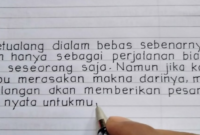 etualang dialam bebas sebenarny
n hanya sebagai perjalanan bia
seseorang saja. Namun jika ka
bu merasakan makna darinya, m
langan akan memberikan pesar
nyata untukmu,